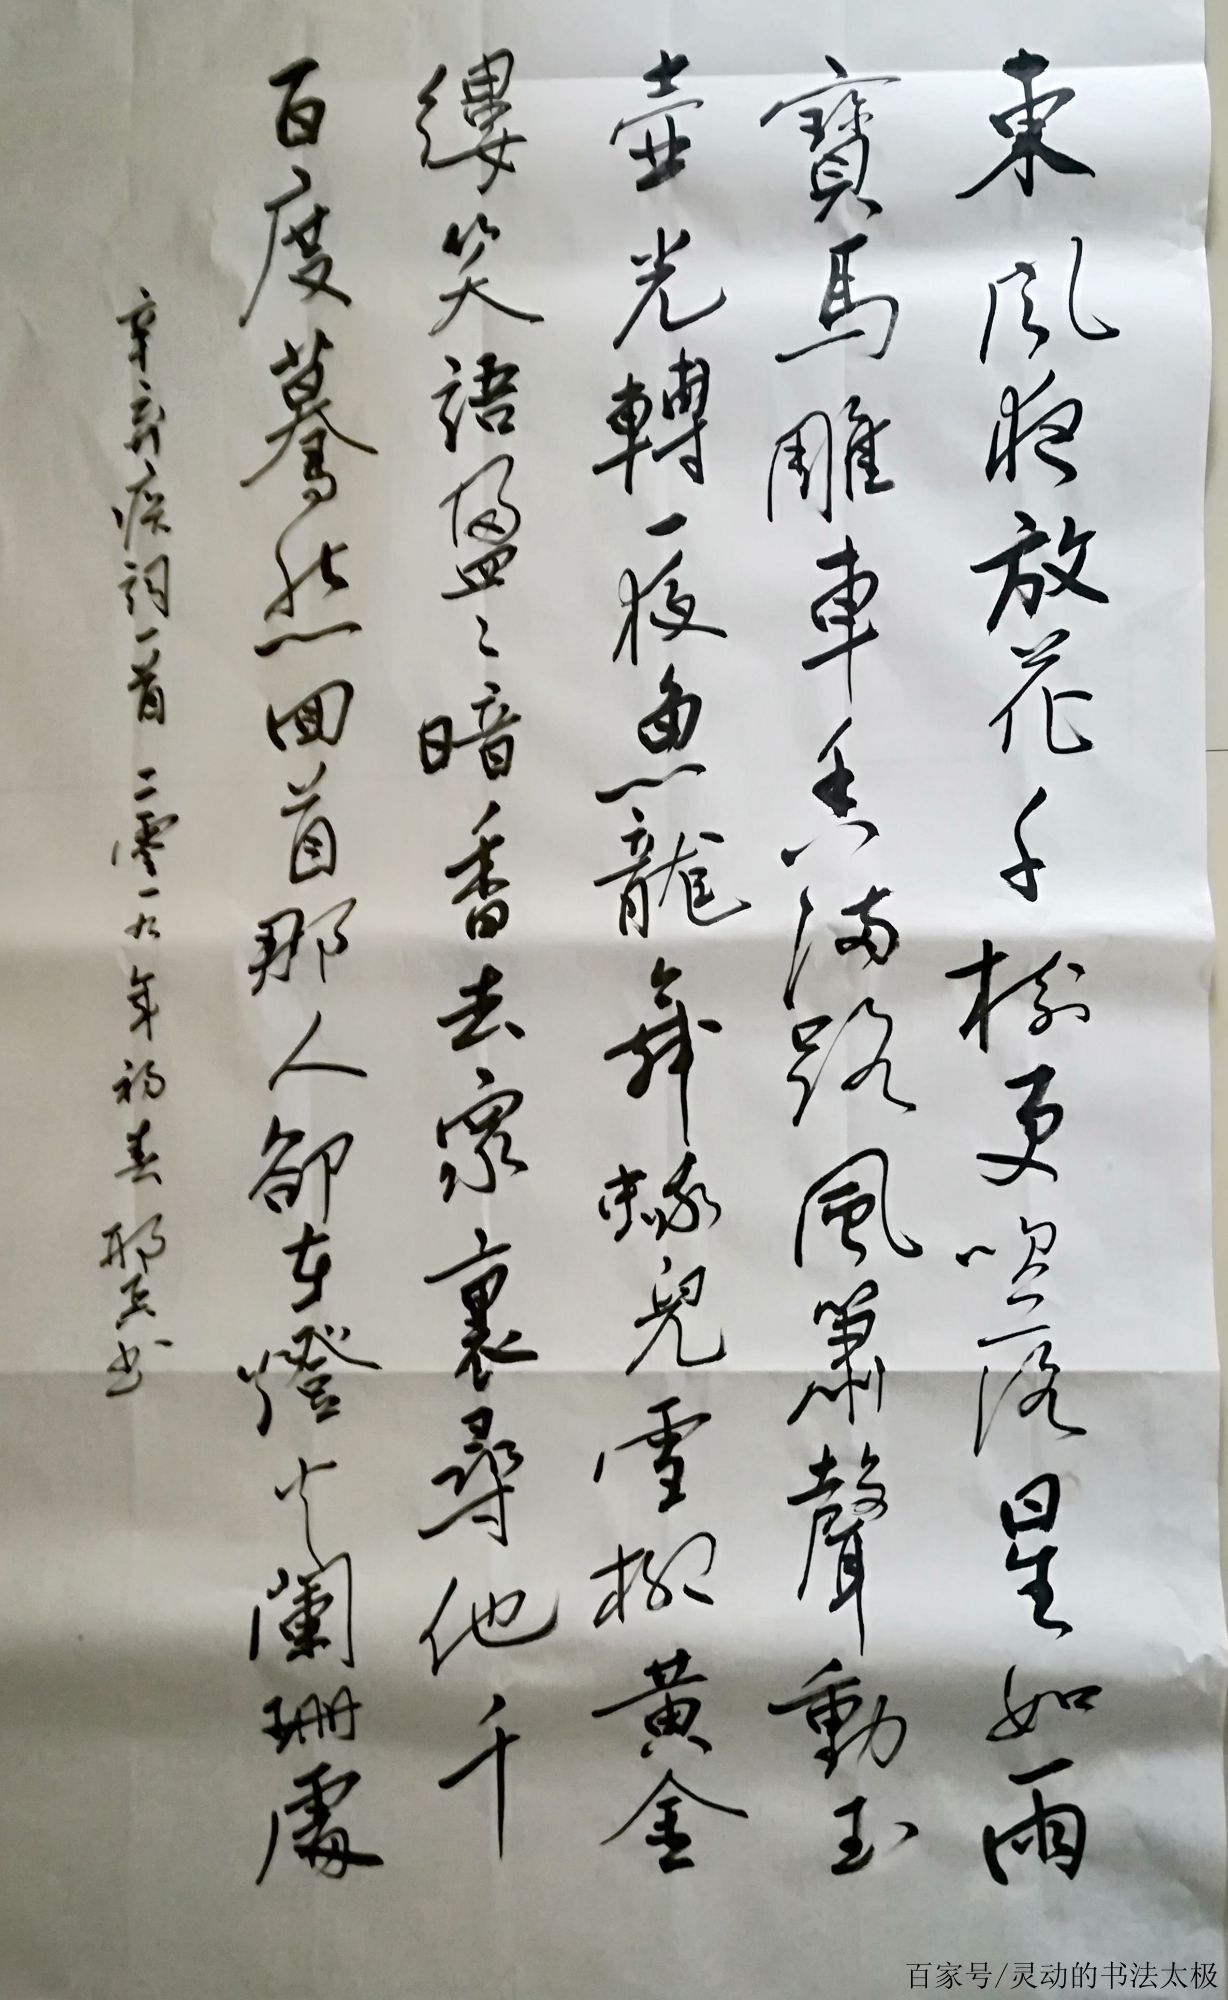 東風夜放花千樹更吹落星如雨
寶馬雕車香滿路風簫聲動玉
壺光轉一夜魚龍舞蛾兒雪柳黃金
縷笑語盈〻暗香去眾裏尋他千
百度驀然回首那人卻在燈火闌珊處
辛棄疾詞一首 二零一九年初春 書
百家号/灵动的书法太极